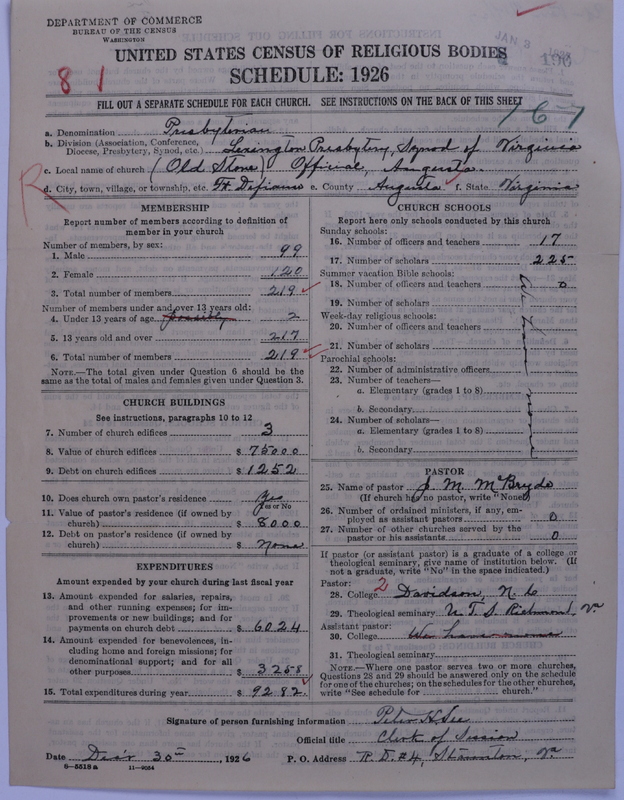 DEPARTMENT OF COMMERCE
BUREAU OF THE CENSUS
WASHINGTON
JAN 3
UNITED STATES CENSUS OF RELIGIOUS BODIES
SCHEDULE: 1926
190
81
FILL OUT A SEPARATE SCHEDULE FOR EACH CHURCH. SEE INSTRUCTIONS ON THE BACK OF THIS SHEET
167
a. Denomination Presbyterian
b. Division (Association, Conference, Diocese, Presbytery, Synod, etc.) Lexington Presbytery, Synod of Virginia
c. Local name of church (Old Stone) Official, Augusta.
R
d. City, town, village, or township, etc. Ft. Defiance e. County Augusta f. State Virginia
MEMBERSHIP
Report number of members according to definition of
member in your church
Number of members, by sex:
1. Male 99
2. Female 120
3. Total number of members 219
Number of members under and over 13 years old:
4. Under 13 years of age possibly 2
5. 13 years old and over 217
6. Total number of members 219
NOTE.—The total given under Question 6 should be
same as the total of males and females given under Question 3.
CHURCH BUILDINGS
See instructions, paragraphs 10 to 12
7. Number of church edifices 3
8. Value of church edifices $ 75000
9. Debt on church edifices $ 1252
10. Does church own pastor's residence Yes
Yes or No
11. Value of pastor's residence (if owned by
church) $ 8000
12. Debt on pastor's residence (if owned by
church) $ None
EXPENDITURES
Amount expended by church during last fiscal year
13. Amount expended for salaries, repairs,
and other running expenses; for im-
provements or new buildings; and for
payments on church debt $ 6024
14. Amount expended for benevolences, in-
cluding home and foreign missions; for
denominational support; and for all
other purposes $ 3258
15. Total expenditures during year $ 9282.
CHURCH SCHOOLS
Report here only schools conducted by this church
Sunday schools:
16. Number of officers and teachers 17
17. Number of scholars 225
Summer vacation Bible schools:
18. Number of officers and teachers 0
19. Number of scholars
Week-day religious schools:
20. Number of officers and teachers
21. Number of scholars
Parochial schools:
22. Number of administrative officers
23. Number of teachers—
a. Elementary (grades 1 to 8)
b. Secondary
24. Number of scholars—
a. Elementary (grades 1 to 8)
b. Secondary
We have none
PASTOR
25. Name of pastor J. M. McBryde
(If church has no pastor, write "None")
26. Number of ordained ministers, if any, em-
ployed as assistant pastors 0
27. Number of other churches served by the
pastor or his assistants 0
If pastor (or assistant pastor) is a graduate of a college or
theological seminary, give name of institution below. (If
not a graduate, write "No" in the space indicated.)
Pastor:
28. College 2 Davidson, N. C
29. Theological seminary U. T. S Richmond, Va
Assistant pastor:
30. College We have no one
31. Theological seminary
NOTE.—Where one pastor serves two or more churches,
Questions 28 and 29 should be answered only on the schedule
for one of the churches; on the schedules for the other churches,
write "See schedule for church."
Signature of person furnishing information Peter H. Lee
Official title Clerk of Session
Date Dec'r 30th, 1926 P. O. Address R. D. #4, Staunton, Va.
8—5518 a 11—9034